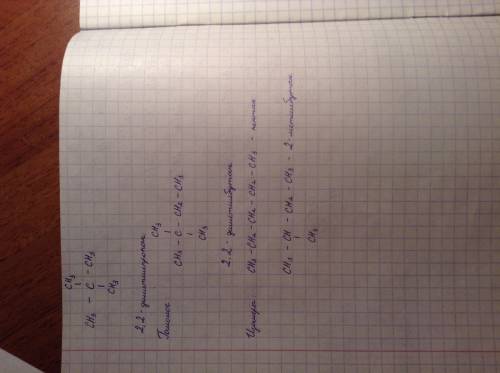 CH₃
CH₃ – C – CH₃
CH₃
2,2 - диметилпропан
Гомолог
CH₃
CH₃ – C – CH₂ – CH₃
CH₃
2,2 - диметилбутан
Изомеры CH₃ – CH₂ – CH₂ – CH₂ – CH₃ - пентан
CH₃ – CH – CH₂ – CH₃ - 2-метилбутан
CH₃